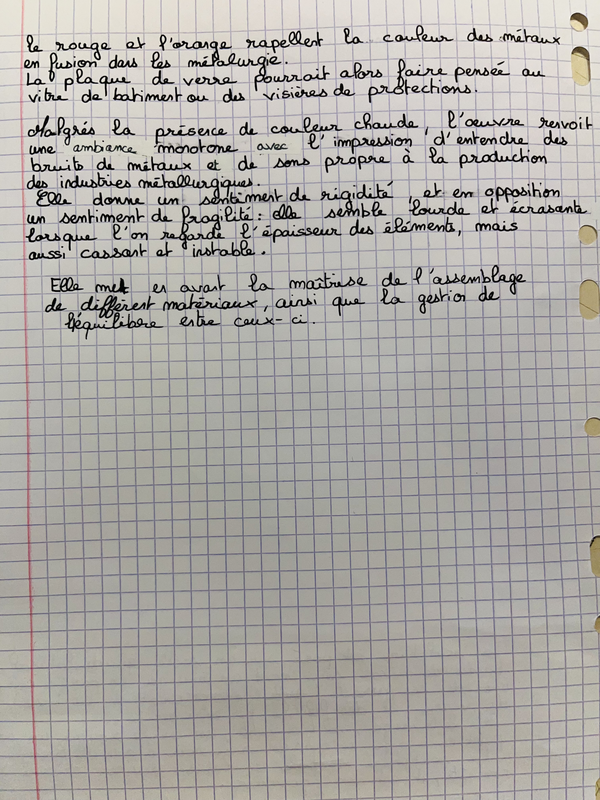 le rouge et l'orange rapellent la couleur des métaux
en fusion dans les métalurgie.
La plaque de verre pourrait alors faire pensée au
vitre de batiment ou des visières de protections.
Malgrés la présence de couleur chaude, l'oeuvre renvoit
une ambiance monotone avec l'impression d'entendre des
bruits de métaux et de sons propre à la production
des industries métallurgiques.
Elle donne un sentiment de rigidité, et en opposition
un sentiment de fragilité : elle semble lourde et écrasante
lorsque l'on regarde l'épaisseur des éléments, mais
aussi cassant et instable.
Elle met en avant la maîtrise de l'assemblage
de différent matériaux, ainsi que la gestion de
l'équilibre entre ceux-ci.